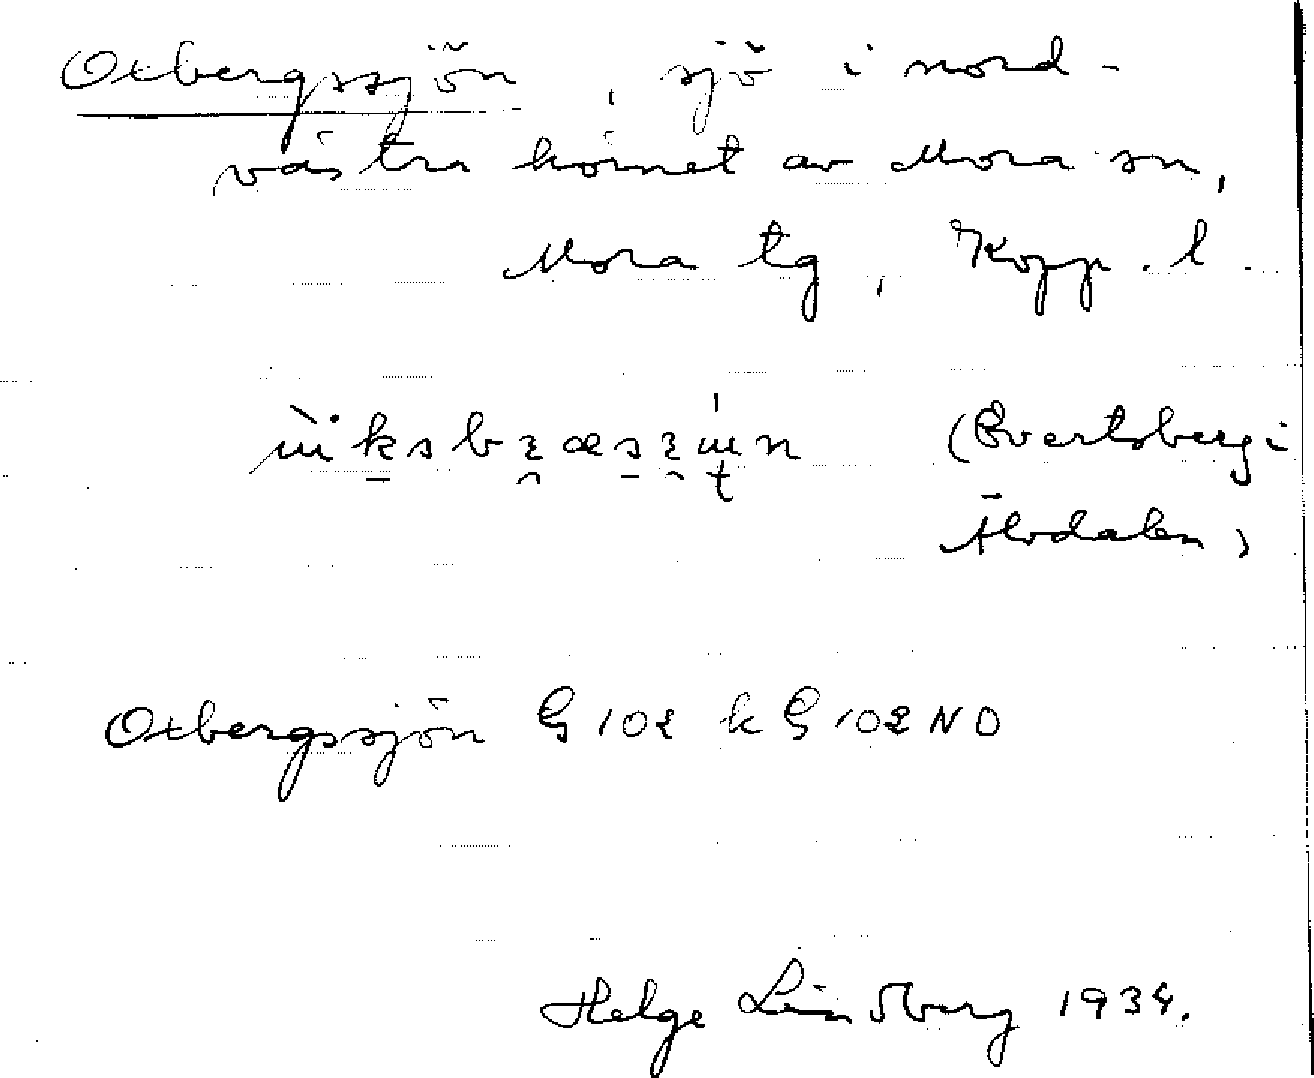 Oxbergssjön, sjö i nord-
västra hörnet av Mora sn,
Mora tg, Kopp. l.
(Evertsberg i
Älvdalen)
Oxbergssjön G 102 k G 102 NO
Helge Lindberg 1934.